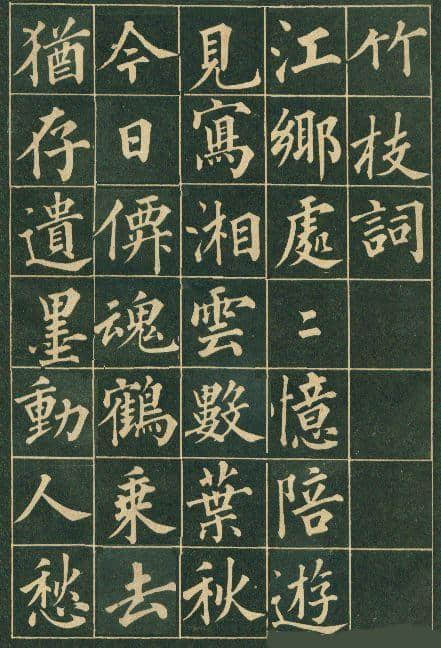 竹枝詞
江鄉處二憶陪遊
見寫湘雲數葉秋
今日僊魂鶴乘去
猶存遺墨動人愁